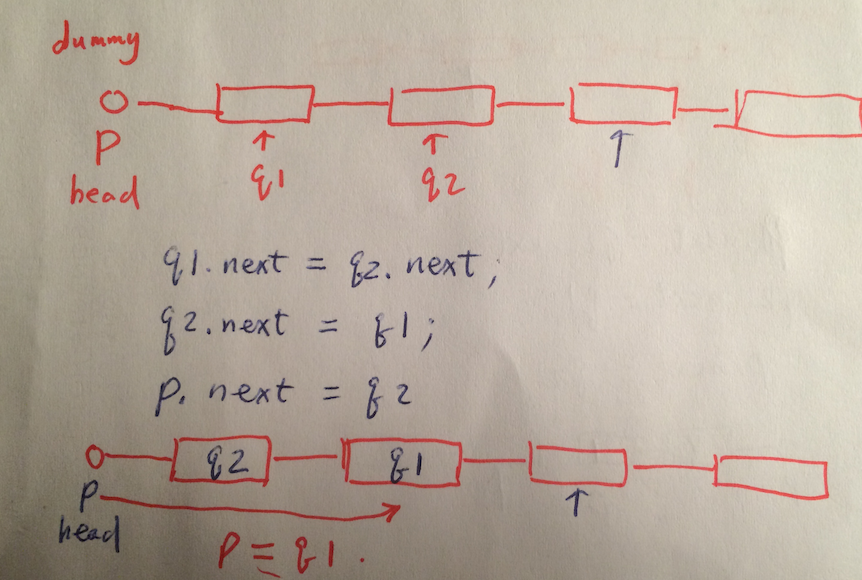 dummy
p
head
q1
q2
q1.next = q2.next;
q2.next = q1;
p. next = q2
q2
q1
p
head
p = q1.